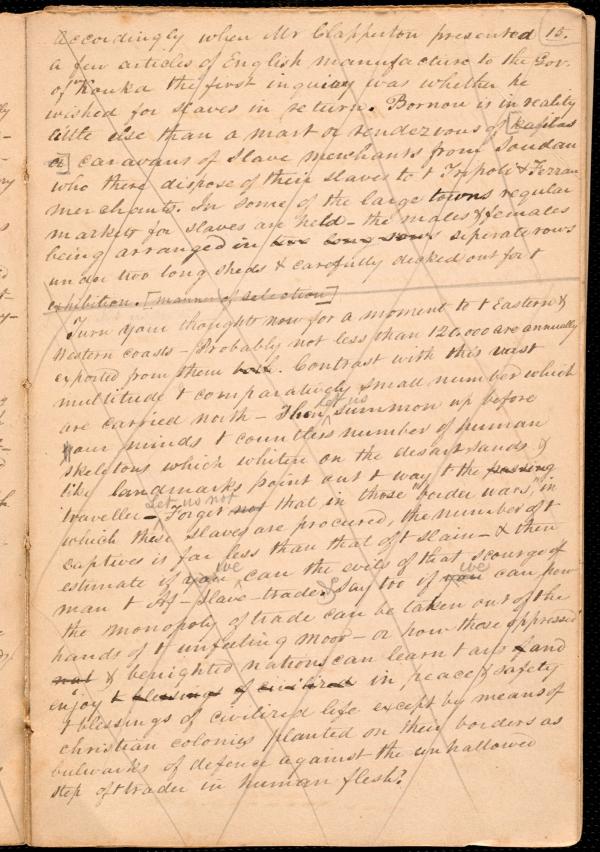 Accordingly when Mr Clapperton presented 15.
a few articles of English manufacture to the Gov.
of Kouka the first inquiry was whether he
wished for slaves in return. Bornow is in reality
little else than a mart or rendezvous of [kafilas
or] caravans of slave merchants from Soudan
who there dispose of their slaves to t Tripoli & Fezzan
merchants. In some of the large towns regular
markets for slaves are held – the males & females
being arranged in two long rows seperate rows
under two long sheds & carefully decked out for t
exhibition. [manner of selection]
Turn your thoughts now for a moment to t Eastern &
Western coasts – Probably not less than 120,000 are annually
exported from them both. Contrast with this vast
multitude t comparatively small number which
are carried north – Then let us summon up before
your minds t countless number of human
skeletons which whiten on the desart sands &
like landmarks point out t way t the passing
traveller – Let us not Forget not that in those border wars, in
which these slaves are procured, the number of t
captives is far less than that of t slain – & then
estimate if you we can the evils of that scourge of
man t Af – Slave-trade. & Say too if you we can how
the monopoly of trade can be taken out of the
hands of t unfeeling moor – or how those oppressed
and & benighted nations can learn t arts and
enjoy t blessings of civilized in peace & safety
t blessings of civilized life except by means of
christian colonies planted on their borders as
bulwarks of defence against the unhallowed
step of t trader in human flesh?